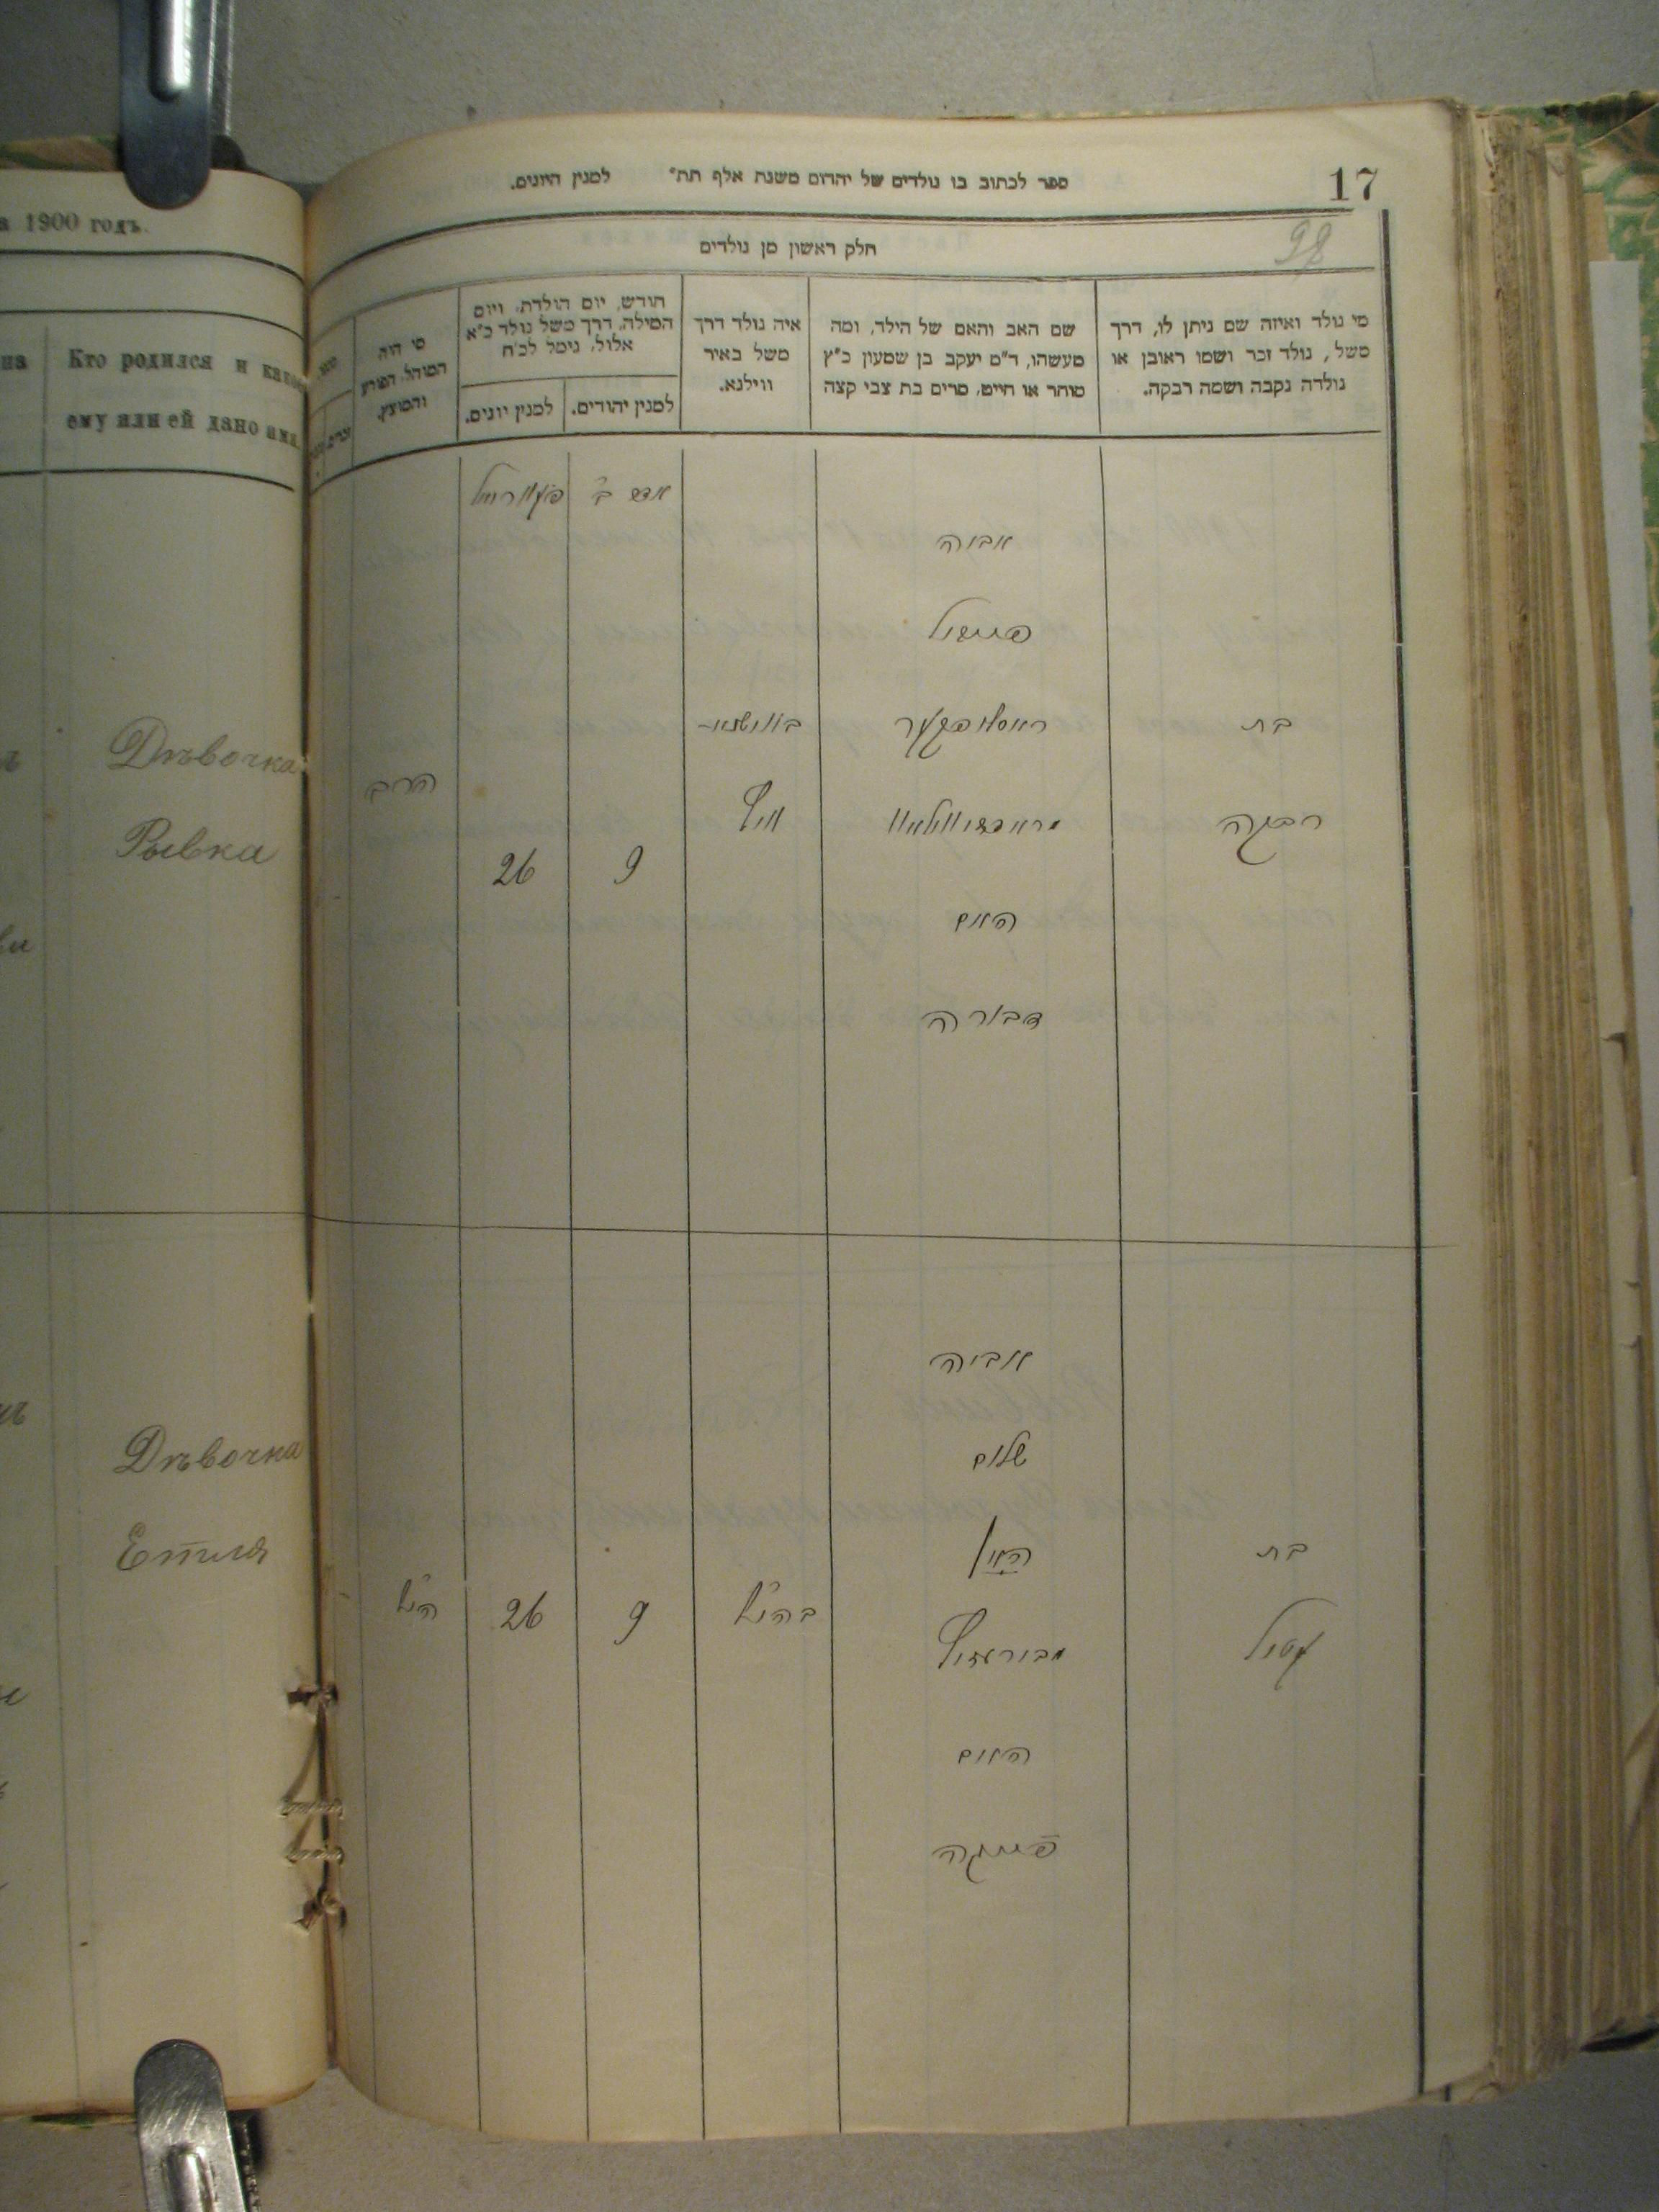 а 1900 годъ.
на
Кто родился и какое
ему или ей дано имя.
Дѣвочка
Рывка
Дѣвочка
Етля
17
ספר לכתוב בו נולדים של יהדום משנת אלף תת״ למנין היונים.
98
חלק ראשון מן נולדים
מי נולד ואיזה שם ניתן לו, דרך
משל, נולד זכר ושמו ראובן או
נולדה נקבה ושמה רבקה.
שם האב והאם של הילד, ומה
מעשהו, ד״מ יעקב בן שמעון כ״ץ
סוחר או חייט, מרים בת צבי קצה
איה נולד דרך
משל באיר
ווילנא.
חודש, יום הולדת, ויום
המילה, דרך משל נולד כ״א
אלול, נימל לכ״ח
למנין יהודים.
למנין יונים.
מי היה
המוהל הפורע
והמוצץ.
אדר ב׳
אביה
פייוויל
בת
רבקה
האם
דבורה
9
26
הרב
אביה
שלום
בת
עטיל
האם
9
26
בהנ״ל
הנ״ל